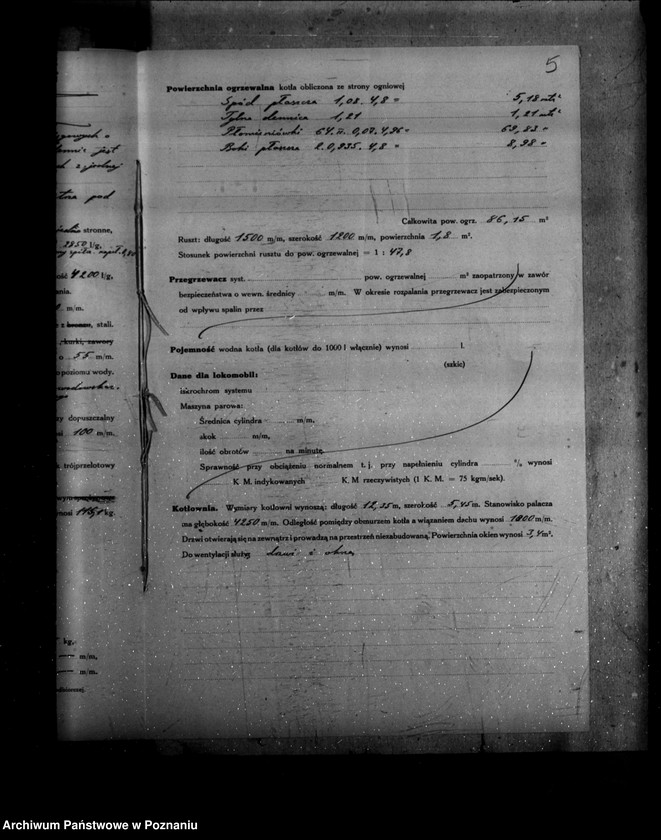 5
Powierzchnia ogrzewalna kotła obliczona ze strony ogniowej
Spód płaszcza 1,08. 4,8 " 5,18 mtr²
Tylna dennica 1,21 1,21 mtr²
Płomieniówki 64. π. 0,07. 4,96 "
Boki płaszcza 2. 0,935. 4,8 " 8,98 "
Całkowita pow. ogrz. 86,15 m²
Ruszt: długość 1500 m/m, szerokość 1200 m/m, powierzchnia 1,8 m².
Stosunek powierzchni rusztu do pow. ogrzewalnej = 1 : 47,8
Przegrzewacz syst. pow. ogrzewalnej m² zaopatrzony w zawór
bezpieczeństwa o wewn. średnicy m/m. W okresie rozpalania przegrzewacz jest zabezpieczonym
od wpływu spalin przez
Pojemność wodna kotła (dla kotłów do 1000 l włącznie) wynosi l.
(szkic)
Dane dla lokomobil:
iskrochrom systemu
Maszyna parowa:
Średnica cylindra m/m,
skok m/m,
ilość obrotów na minutę.
Sprawność przy obciążeniu normalnem t. j. przy napełnieniu cylindra % wynosi
K M. indykowanych K. M rzeczywistych (1 K. M. = 75 kgm/sek).
Kotłownia. Wymiary kotłowni wynoszą: długość 12,35 m, szerokość 5,45 m. Stanowisko palacza
ma głębokość 4250 m/m. Odległość pomiędzy obmurzem kotła a wiązaniem dachu wynosi 1800 m/m.
Drzwi otwierają się na zewnątrz i prowadzą na przestrzeń niezabudowaną. Powierzchnia okien wynosi 3,4 m².
Do wentylacji służą: drzwi i okna
stronne,
2850 l/g,
4200 l/g,
stali.
kurki, zawory
o 55 m/m.
poziomu wody.
dopuszczalny
100 m/m.
trójprzelotowy
kg.
kg,
m/m,
m/m.
Archiwum Państwowe w Poznaniu